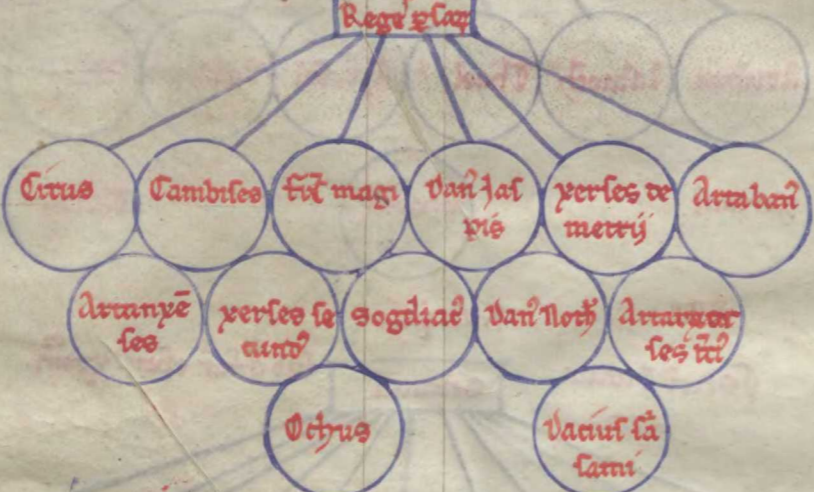 Rege' ꝑsaꝝ
Cirus
Cambises
magi
Dari9 Jas
pis
xerses de
metrij
Artaban9
Artanxē
ses
xerses se
cund9
Sogdian9
Dari9 Noth9
Artaxer
ses
Ochus
Darius
sami